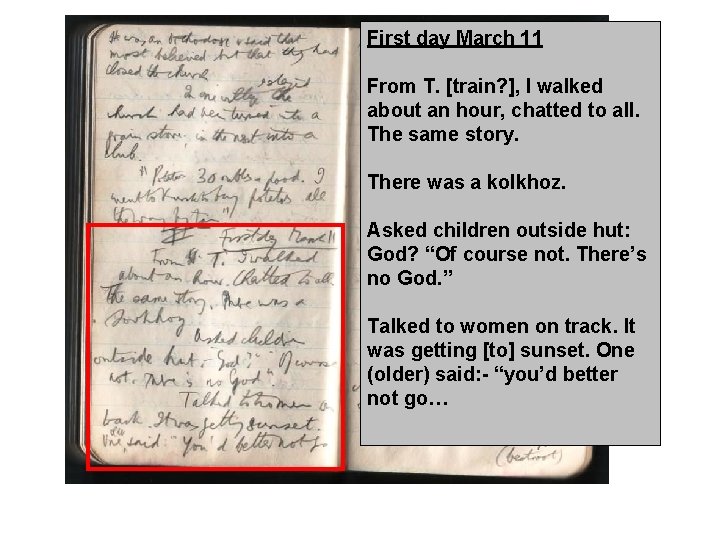 He was an Orthodox & said that
most believed but that they had
closed the church
In one village the
church had been turned into a
grain store, in the next into a
club.
"Potatoes 30 roubles a pood. I
went to Kursk to buy potatoes all
the way
First day March 11
From T. I walked
about an hour. Chatted to all.
The same story. There was a
kolkhoz
Asked children
outside hut:- God? "Of course
not. There is no God".
Talked to women on
track. It was getting sunset.
One said:- "You'd better not go
(beetroot)
First day March 11
From T. [train?], I walked
about an hour, chatted to all.
The same story.
There was a kolkhoz.
Asked children outside hut:
God? “Of course not. There’s
no God. ”
Talked to women on track. It
was getting [to] sunset. One
(older) said: - “you’d better
not go…